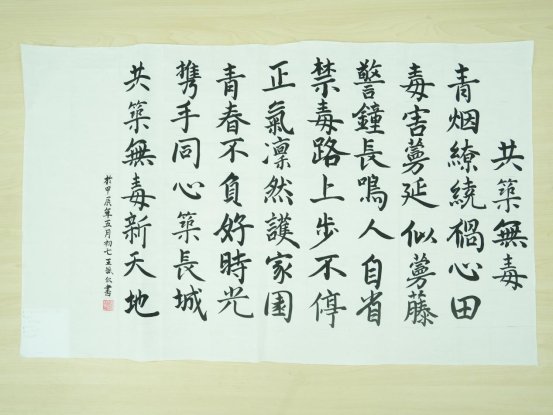 共築無毒
青烟繚繞禍心田
毒害蔓延似蔓藤
警鐘長鳴人自省
禁毒路上步不停
正氣凛然護家園
青春不負好時光
携手同心築長城
共築無毒新天地
於甲辰年五月初七王書